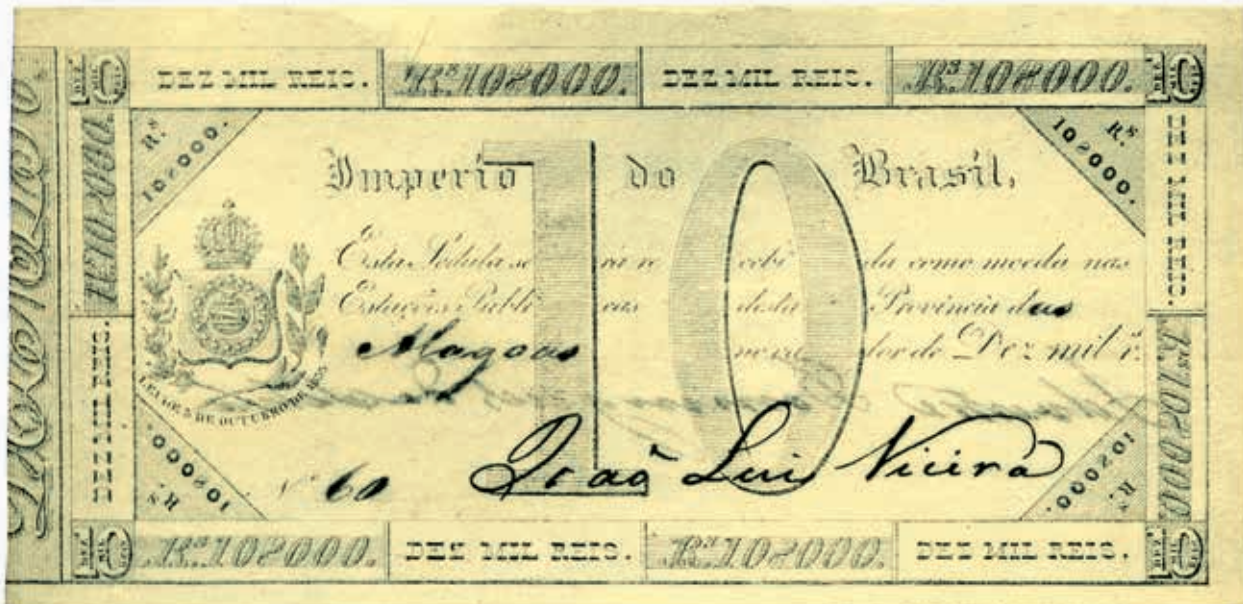 10 DEZ MIL REIS. Rs.10$000. DEZ MIL REIS. Rs.10$000. 10
Rs.10$000.
Rs 10$000.
Rs 10$000.
DEZ MIL REIS.
Imperio do Brasil,
10
Esta Sedula será recebida como moeda nas
Estações Publicas desta Provincia das
Alagoas no valor de Dez mil rs.
LEI DE 3 DE OUTUBRO DE 1833
DEZ MIL REIS.
Rs.10$000.
10$000. Rs
10$000. Rs
No 60 João Luis Vieira
10 Rs.10$000. DEZ MIL REIS. Rs.10$000. DEZ MIL REIS. 10